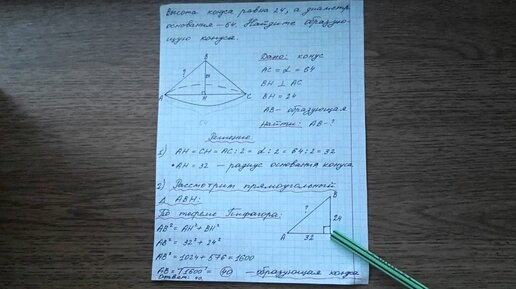 Высота конуса равна 24, а диаметр
основания – 64. Найдите образую-
щую конуса.
Дано: конус
AC = d = 64
BH ⊥ AC
BH = 24
AB – образующая
Найти: AB – ?
B
?
A
H
C
Решение
1) AH = CH = AC : 2 = d : 2 = 64 : 2 = 32
• AH = 32 – радиус основания конуса
2) Рассмотрим прямоугольный
Δ ABH:
По теореме Пифагора:
AB² = AH² + BH²
AB² = 32² + 24²
AB² = 1024 + 576 = 1600
AB = √1600 = 40 – образующая конуса
Ответ: 40.
B
?
24
A
32